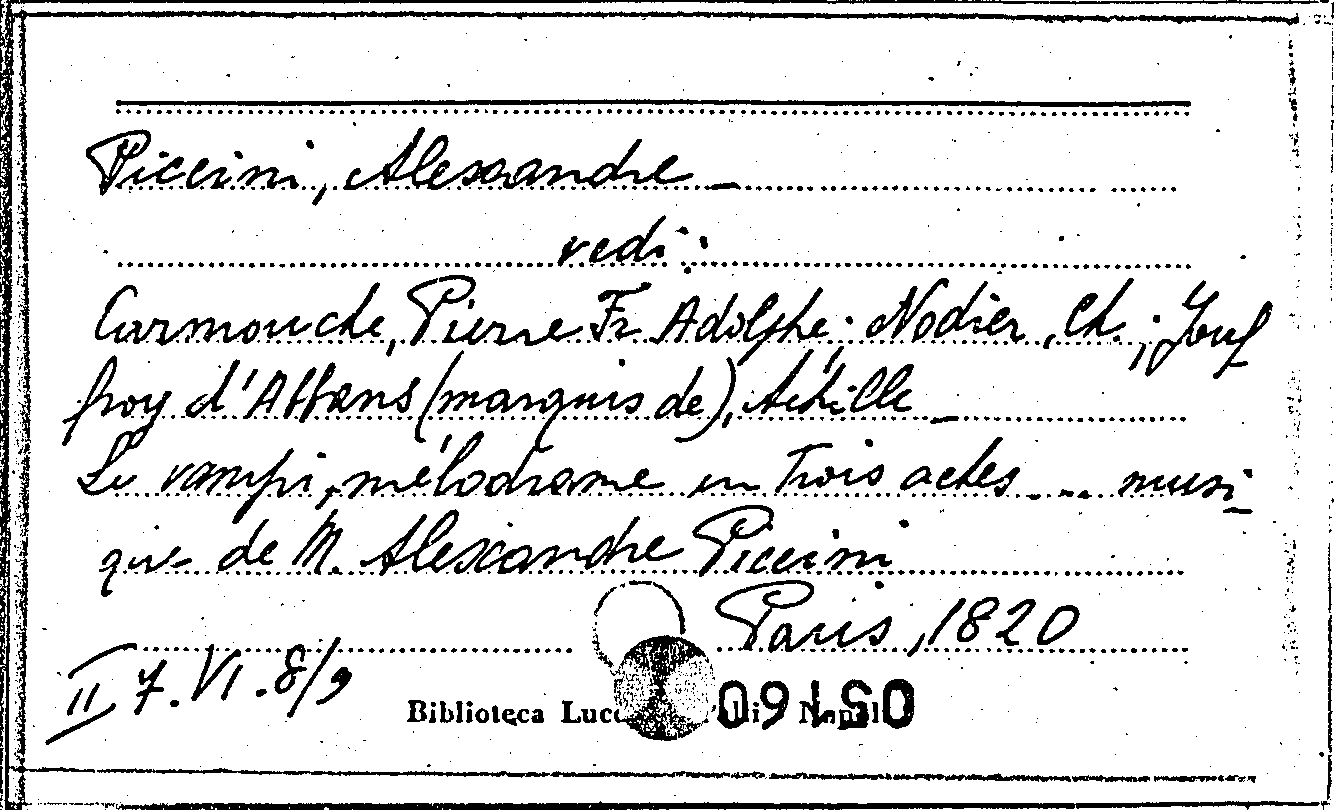 Piccini, Alexandre _
vedi:
Carmouche, Pierre Fr. Adolphe; Nodier, Ch.; Jouf
froy d'Abbans (marquis de), Achille _
Le vampi, mélodrame en trois actes ... musi
que de M. Alexandre Piccini
Paris, 1820
II 7. VI. 8/9
Biblioteca
09150